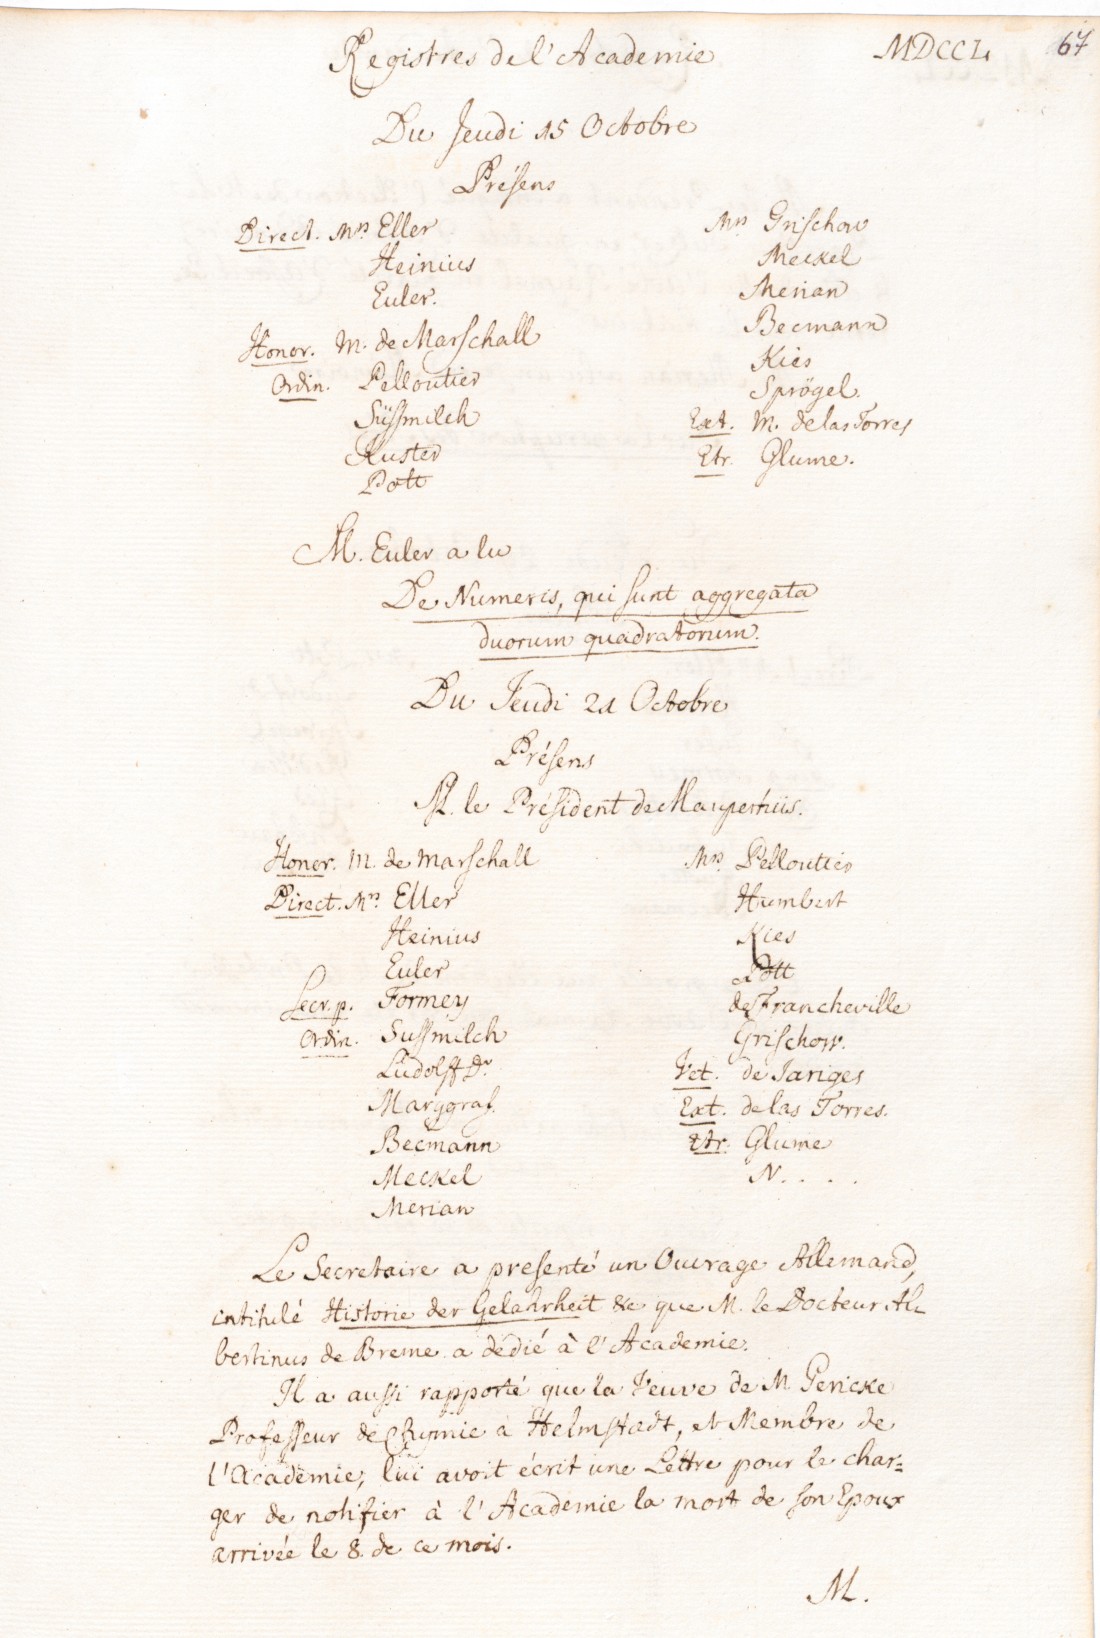 Registres de l'Academie
MDCCL
67
Du Jeudi 15 Octobre
Présens
Direct. Mrs Eller
Heinius
Euler.
Honor. M. de Marschall
Ordin. Pelloutier
Süssmilch
Kuster
Pott
Mrs Grischow
Meckel
Merian
Becmann
Kies
Sprögel.
Ext. M. de las Torres
Etr. Glume.
M. Euler a lu
De Numeris, qui sunt aggregata
duorum quadratorum.
Du Jeudi 21 Octobre
Présens
M. le Président de Maupertuis.
Honor. M. de Marschall
Direct. Mrs Eller
Heinius
Euler
Secr. p. Formey
Ordin. Sussmilch
Ludolff Dr
Marggraf.
Becmann
Meckel
Merian
Mrs Pelloutier
Humbert
Kies
Pott
de Francheville
Grischow.
Vet. de Jariges
Ext. de las Torres.
Etr. Glume
N. . . .
Le Secretaire a presenté un Ouvrage Allemand,
intitulé Historie der Gelahrheit &c que M. le Docteur Al-
bertinus de Breme a dédié à l'Academie.
Il a aussi rapporté que la Veuve de M. Gericke
Professeur de Chymie à Helmstædt, et Membre de
l'Academie, lui avoit écrit une Lettre pour le char=
ger de notifier à l'Academie la mort de son Epoux
arrivée le 8. de ce mois.
M.